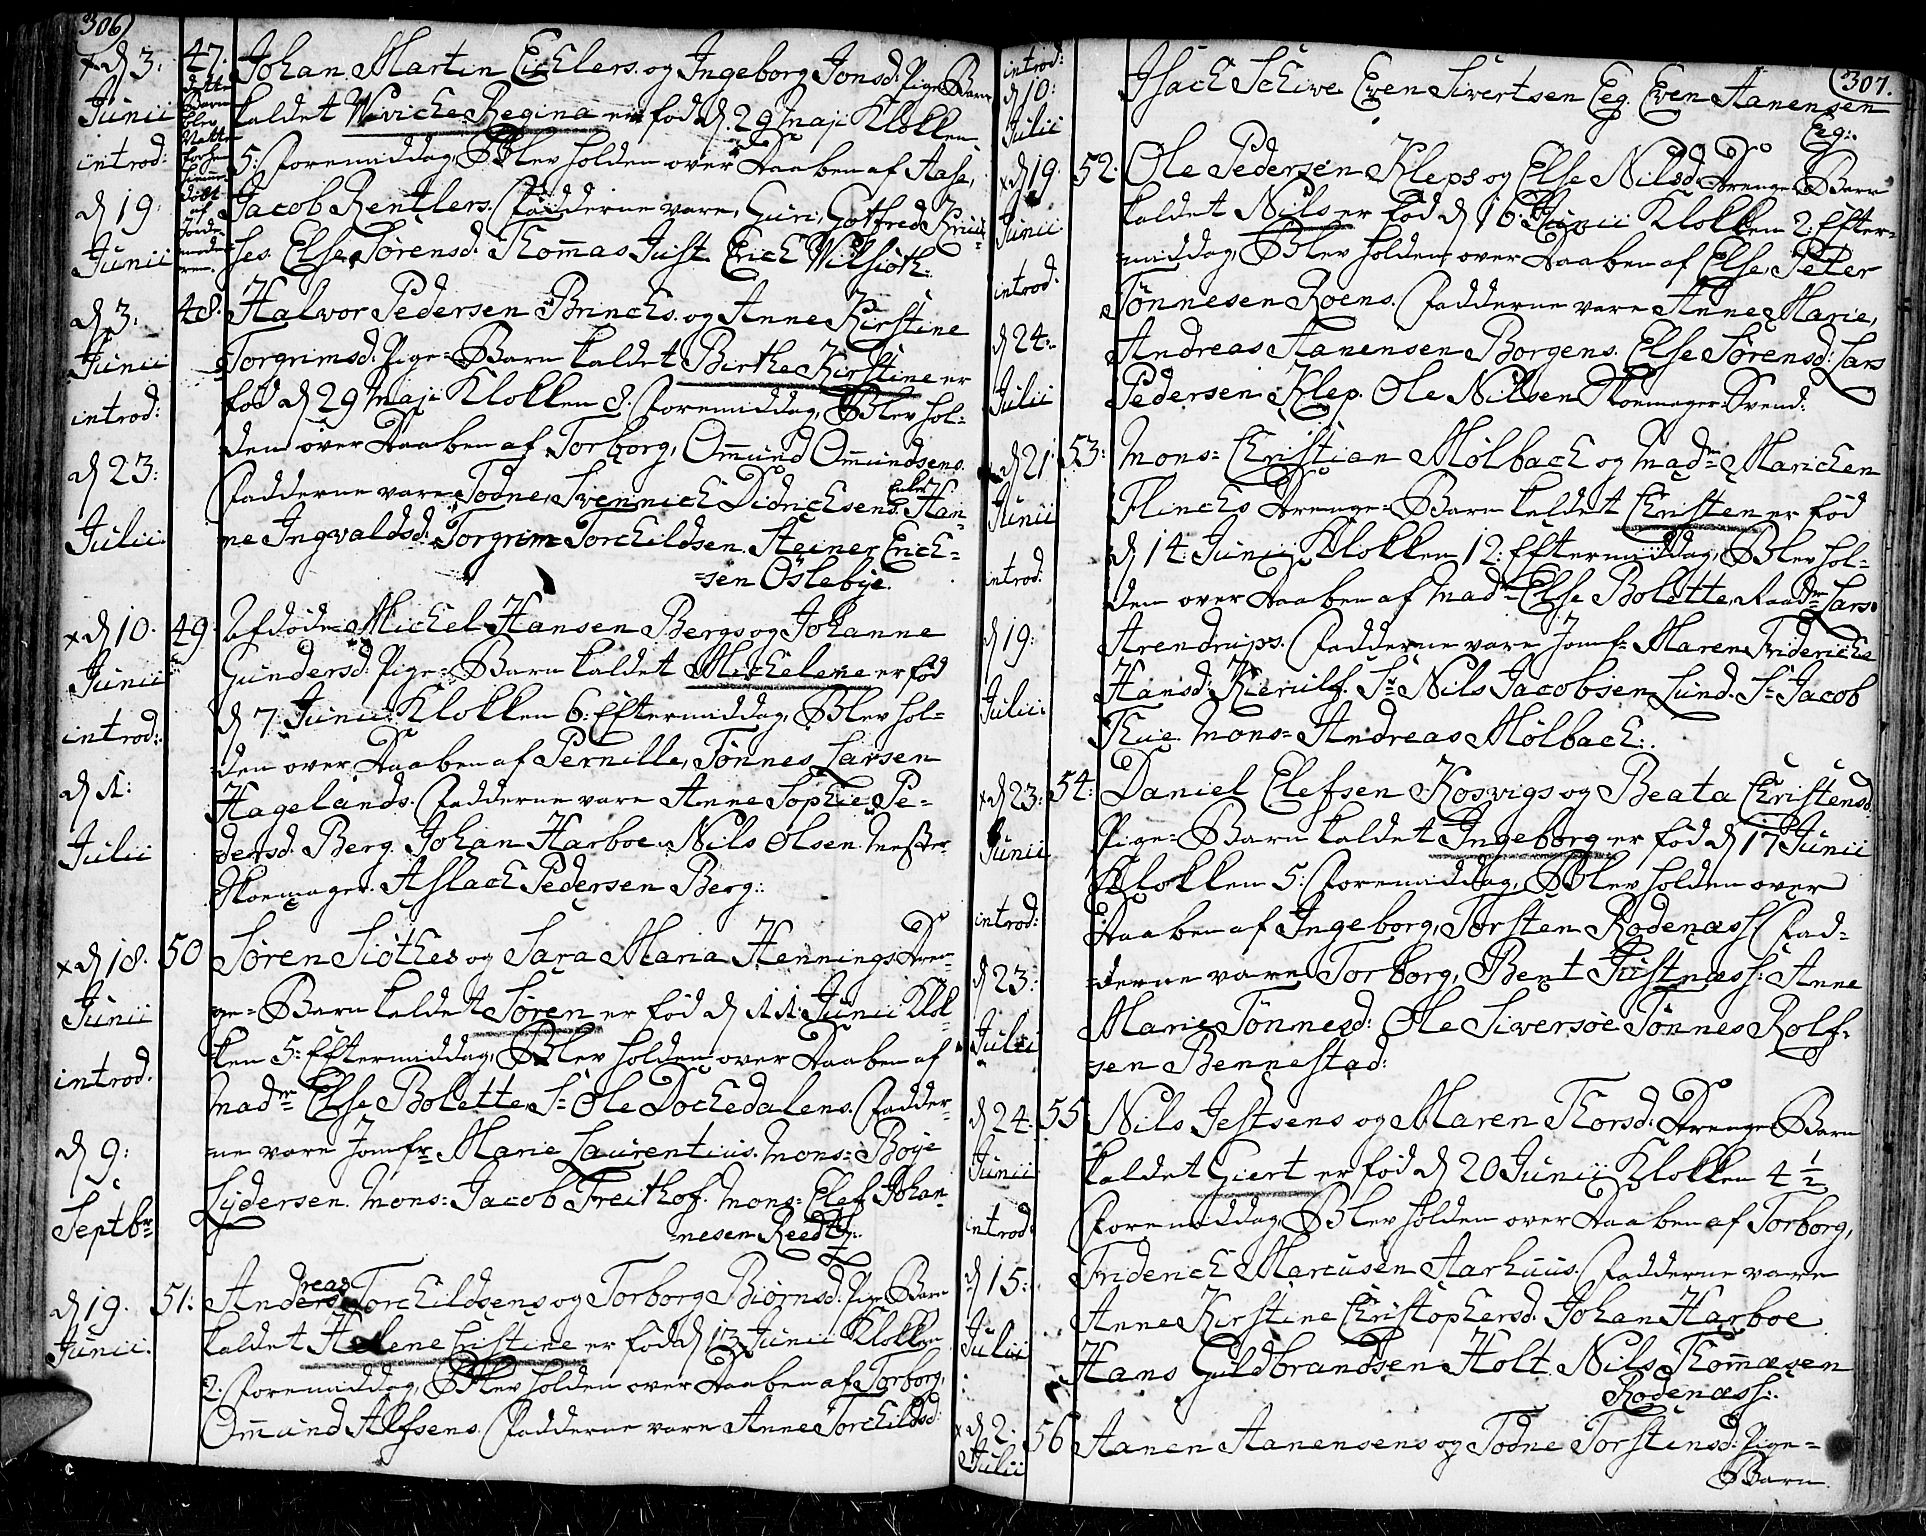 306)
x d 3. Junii introd: d 19. Junii
47.
Johan Martin Eichlers. og Ingeborg Jonsd: Pige-Barn
kaldet Wiviche Regina er fød d. 29 Maji Klokken
5: Foremiddag, Blev holden over Daaben af Aase,
Jacob Rentlers. Fadderne vare, Guri, Gotfred Kruu-
ses. Else Sørensd: Thom̄as Just. Erich Wilsioth:
d 3. Junii introd: d 23: Julii
48.
Halvor Pedersen Brinchs. og Anne Kirstine
Torgrimsd: Pige-Barn kaldet Birthe Kirstine er
fød d 29 Maji Klokken 8. Foremiddag, Blev hol-
den over Daaben af Torborg, Om̄und Om̄undsens.
Fadderne vare Todne, Svennich Didrichsens Enke Han-
ne Ingvaldsd: Torgrim Torchildsen. Steiner Erich-
-sen Oslebye.
x d 10. Junii introd: d 11: Julii
49.
Afdøde Michel Hansen Bergs og Johanne
Gundersd: Pige-Barn kaldet Michelene er fød
d 7: Junii Klokken 6: Eftermiddag, Blev hol-
den over Daaben af Pernille, Tønnes Larsen
Hagelands. Fadderne vare Anne Sophie Pe-
dersd. Berg. Johan Harboe. Nils Olsen Mester-
Skoemager. Aslach Pedersen Berg:
x d 18. Junii introd. d 9: Septbr
50
Søren Siøthes og Sara Maria Hennings Dren-
ge-Barn kaldet Søren er fød d 11. Junii Klok-
ken 5: Eftermiddag, Blev holden over Daaben af
Madme Else Bolette, Sr Ole Dochedalens. Fadder-
ne vare Jomfr Marie Laurentius. Mons= Boye
Lydersen. Mons= Jacob Freithof. Mons= Elef Johan-
nesen Reedtz:
d 19. Junii.
51:
Andreas Torchildsens og Torborg Biørnsd: Pige-Barn
kaldet Helene Cristine er fød d 13 Junii Klokken
2. Foremiddag, Blev holden over Daaben af Torborg,
Om̄und Alfsens. Fadderne vare Anne Torchildsd:
307.
introd: d 10: Julii
Isach Schive Even Sivertsen Eeg. Even Aanensen
Eg:
x d 19. Junii introd: d 24: Julii
52.
Ole Pedersen Kleps og Else Nilsd: Drenge Barn
kaldet Nils er fød d 16: Junii Klokken 2. Efter-
-middag, Blev holden over Daaben af Else, Peter
Tønnesen Roens. Fadderne vare Anne Marie,
Andreas Aanensen Borgens. Else Sørensd: Lars
Pedersen Klep. Ole Nilsen Skoemager-Svend:
x d 21. Junii introd: d 19: Julii:
53:
Mons= Christian Mølbach og Madme Marichen
Flinchs Drenge-Barn kaldet Christen er fød
d 14: Junii Klokken 12: Eftermiddag, Blev hol-
den over Daaben af Madme Else Bolette, Raadm Lars
Arendrups. Fadderne vare Jomf= Maren Friderichs
Hansd: Kierulf. Sr Nils Jacobsen Lund. Sr Jacob
Thue. Mons= Andreas Mølbach:
x d 23: Junii introd: d 23: Julii
54:
Daniel Elefsen Kosvigs og Beata Christensd
Pige-Barn kaldet Ingeborg er fød d 17 Junii
Klokken 5: Foremiddag, Blev holden over
Daaben af Ingeborg, Torsten Rodenæss. Fad-
-derne vare Torborg, Bent Justnæss: Anne
Marie Tønnesd: Ole Siversøe Tønnes Rolf-
sen Bennestad:
d 24. Junii introd: d 15: Julii
55
Nils Jestsens og Maren Thorsd. Drenge Barn
kaldet Giert er fød d 20 Junii Klokken 4 1/2
Foremiddag, Blev holden over Daaben af Torborg,
Friderich Marcusen Aarhuus. Fadderne vare
Anne Kirstine Christophersd: Johan Harboe
Hans Guldbrandsen Holt. Nils Thom̄æsen
Rodenæss:
x d 2. Julii
56
Aanen Aanensens og Todne Torstensd: Pige-
Barn